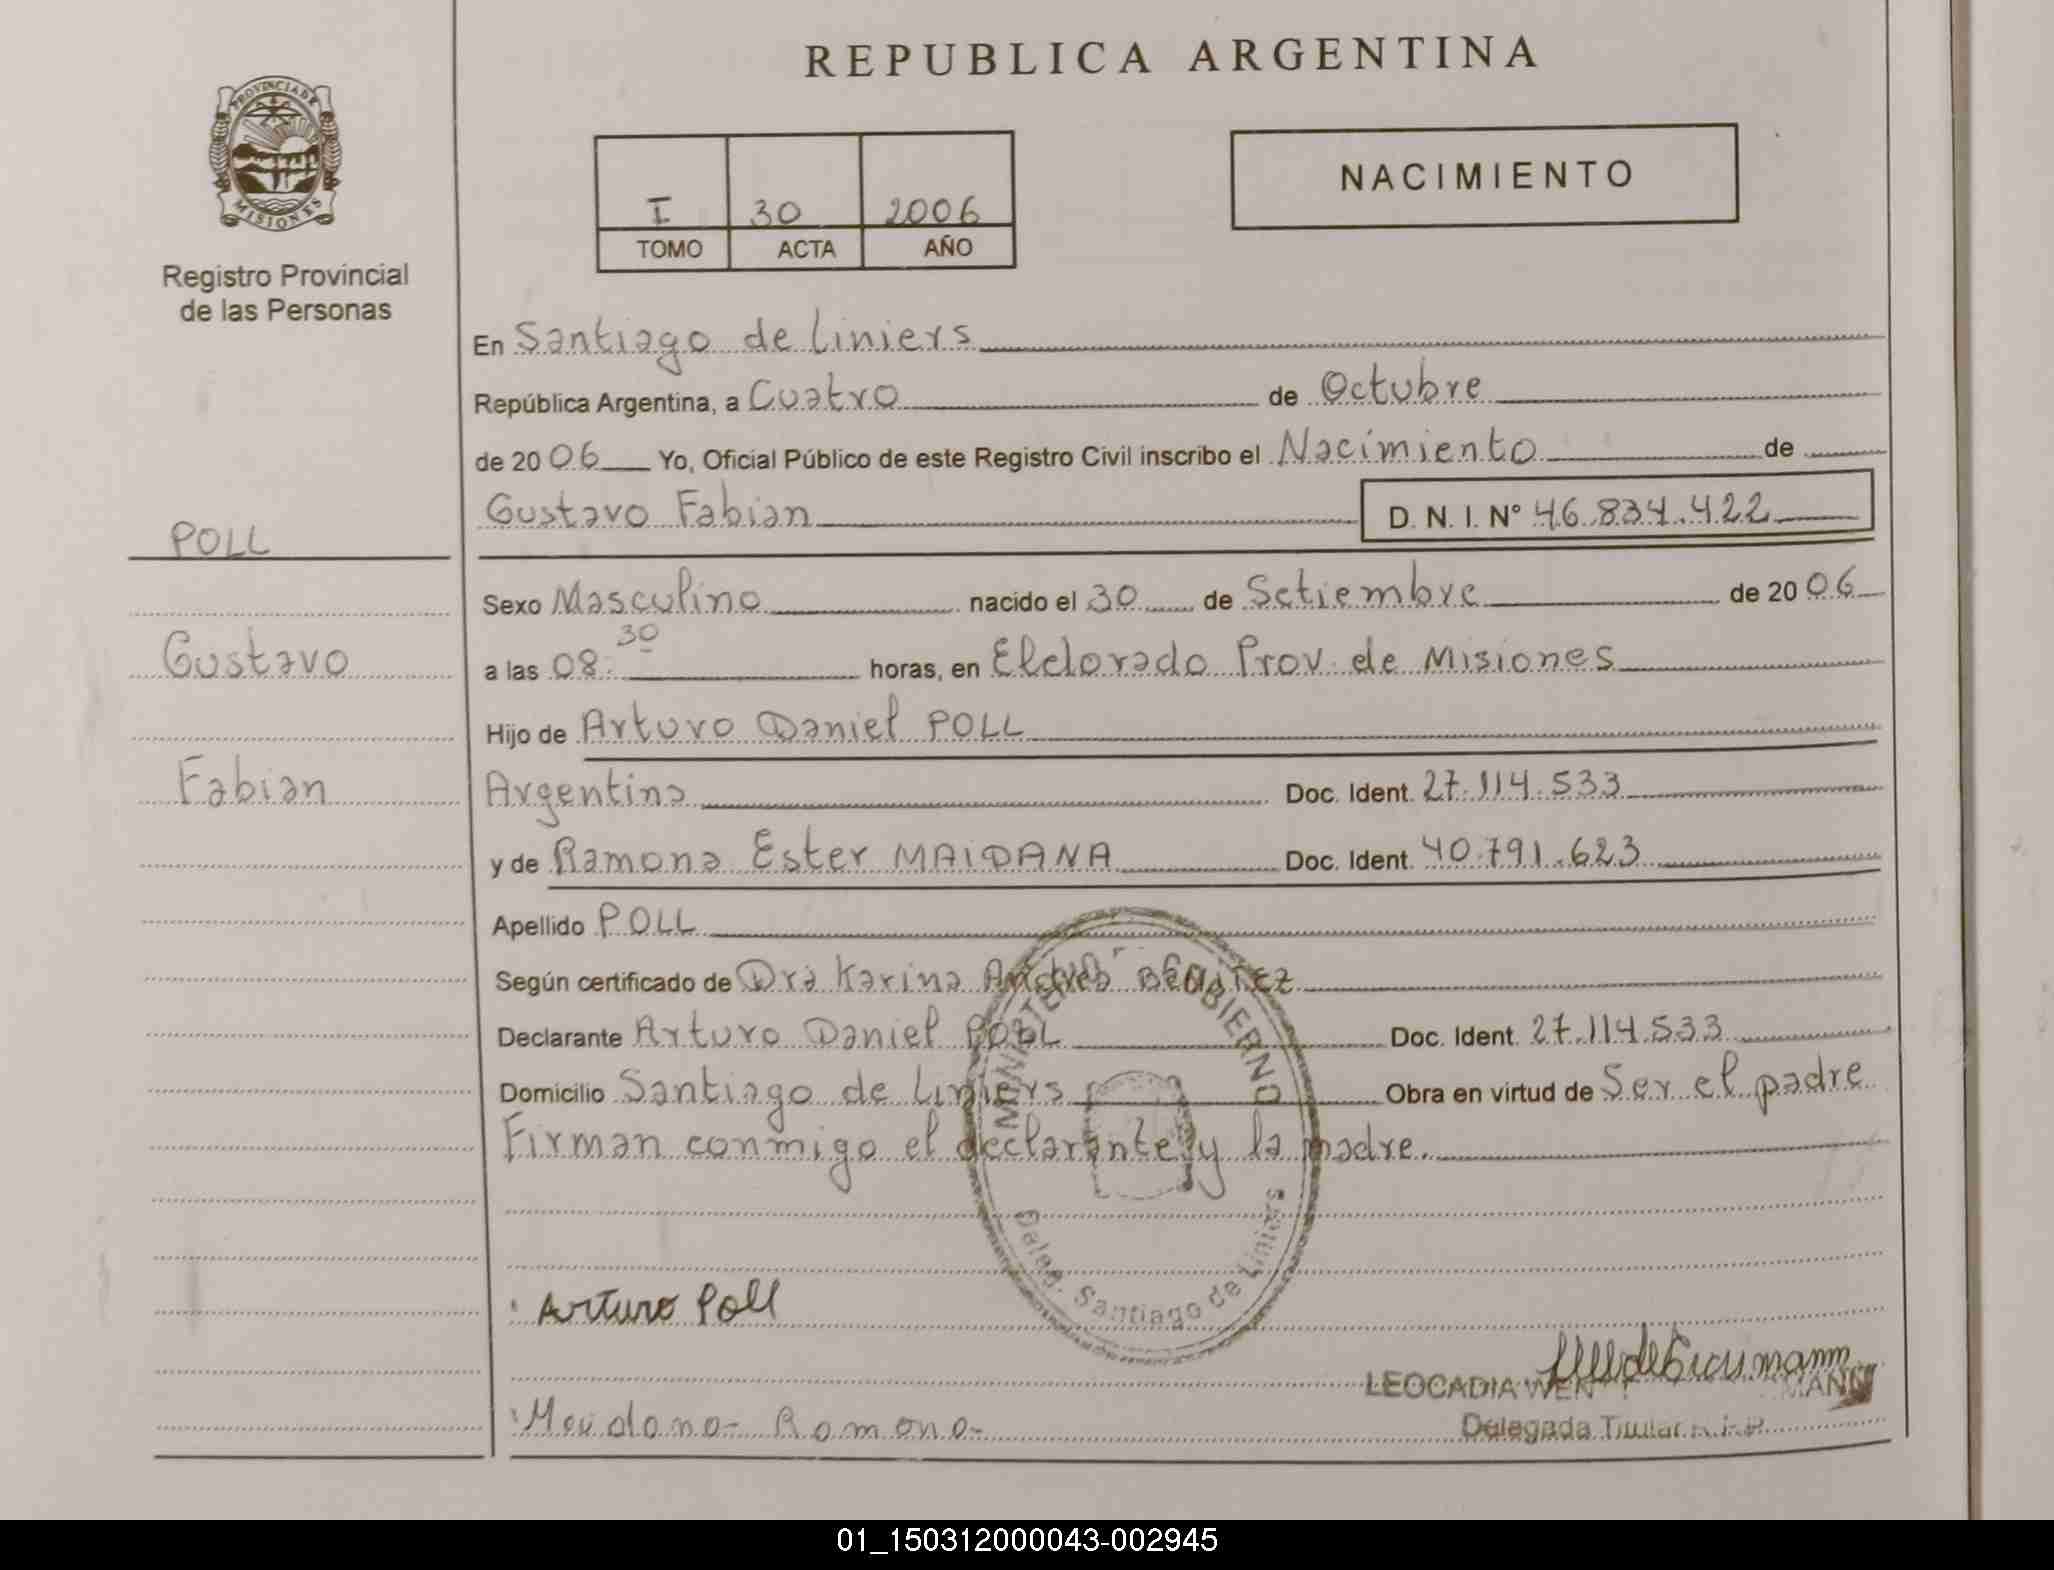 REPUBLICA ARGENTINA
PROVINCIA DE
MISIONES
Registro Provincial
de las Personas
I 30 2006
TOMO ACTA AÑO
NACIMIENTO
En Santiago de Liniers
República Argentina, a Cuatro de Octubre
de 2006 Yo, Oficial Público de este Registro Civil inscribo el Nacimiento de
Gustavo Fabian D. N. I. N° 46.834.422
POLL
Sexo Masculino nacido el 30 de Setiembre de 2006
a las 08:30 horas, en Eldorado Prov. de Misiones
Gustavo
Hijo de Arturo Daniel POLL
Fabian
Argentina Doc. Ident. 27.114.533
y de Ramona Ester MAIDANA Doc. Ident. 40.791.623
Apellido POLL
Según certificado de Dra Karina Andrea BENITEZ
Declarante Arturo Daniel POLL Doc. Ident. 27.114.533
Domicilio Santiago de Liniers Obra en virtud de Ser el padre
Firman conmigo el declarante y la madre.
MINISTERIO GOBIERNO
Deleg. Santiago de Liniers
Arturo Poll
LEOCADIA
Delegada Titular R.P.P.
Maidana Ramona
01_150312000043-002945